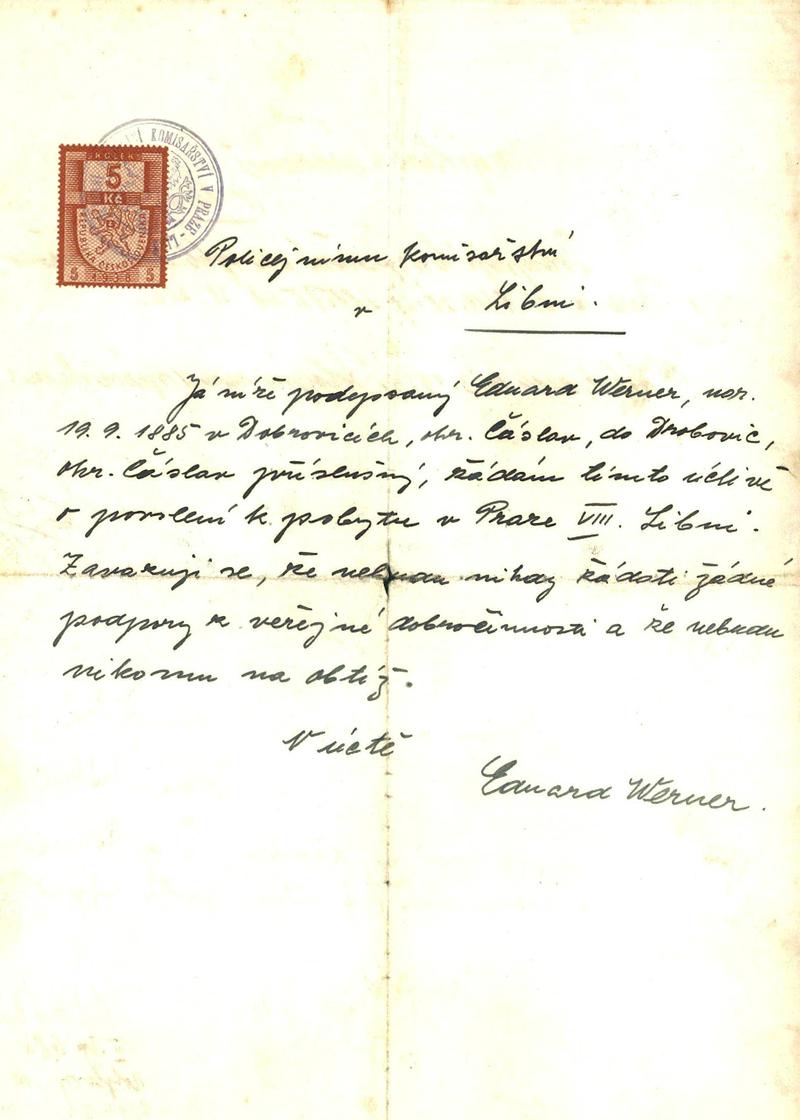 KOLEK
5
Kč
REPUBLIKA ČESKOSLOVENSKÁ
5 1938 5
KOMISAŘSTVÍ V PRAZE - L
Policejnímu komisařství
v Libni.
Já níže podepsaný Eduard Werner, nar.
19. 9. 1885 v Dobrovicích, okr. Čáslav, do Drobovic,
okr. Čáslav příslušný, žádám tímto uctivě
o povolení k pobytu v Praze VIII. Libni.
Zavazuji se, že nebudu nikdy žádati žádné
podpory z veřejné dobročinnosti a že nebudu
nikomu na obtíž.
V úctě
Eduard Werner.